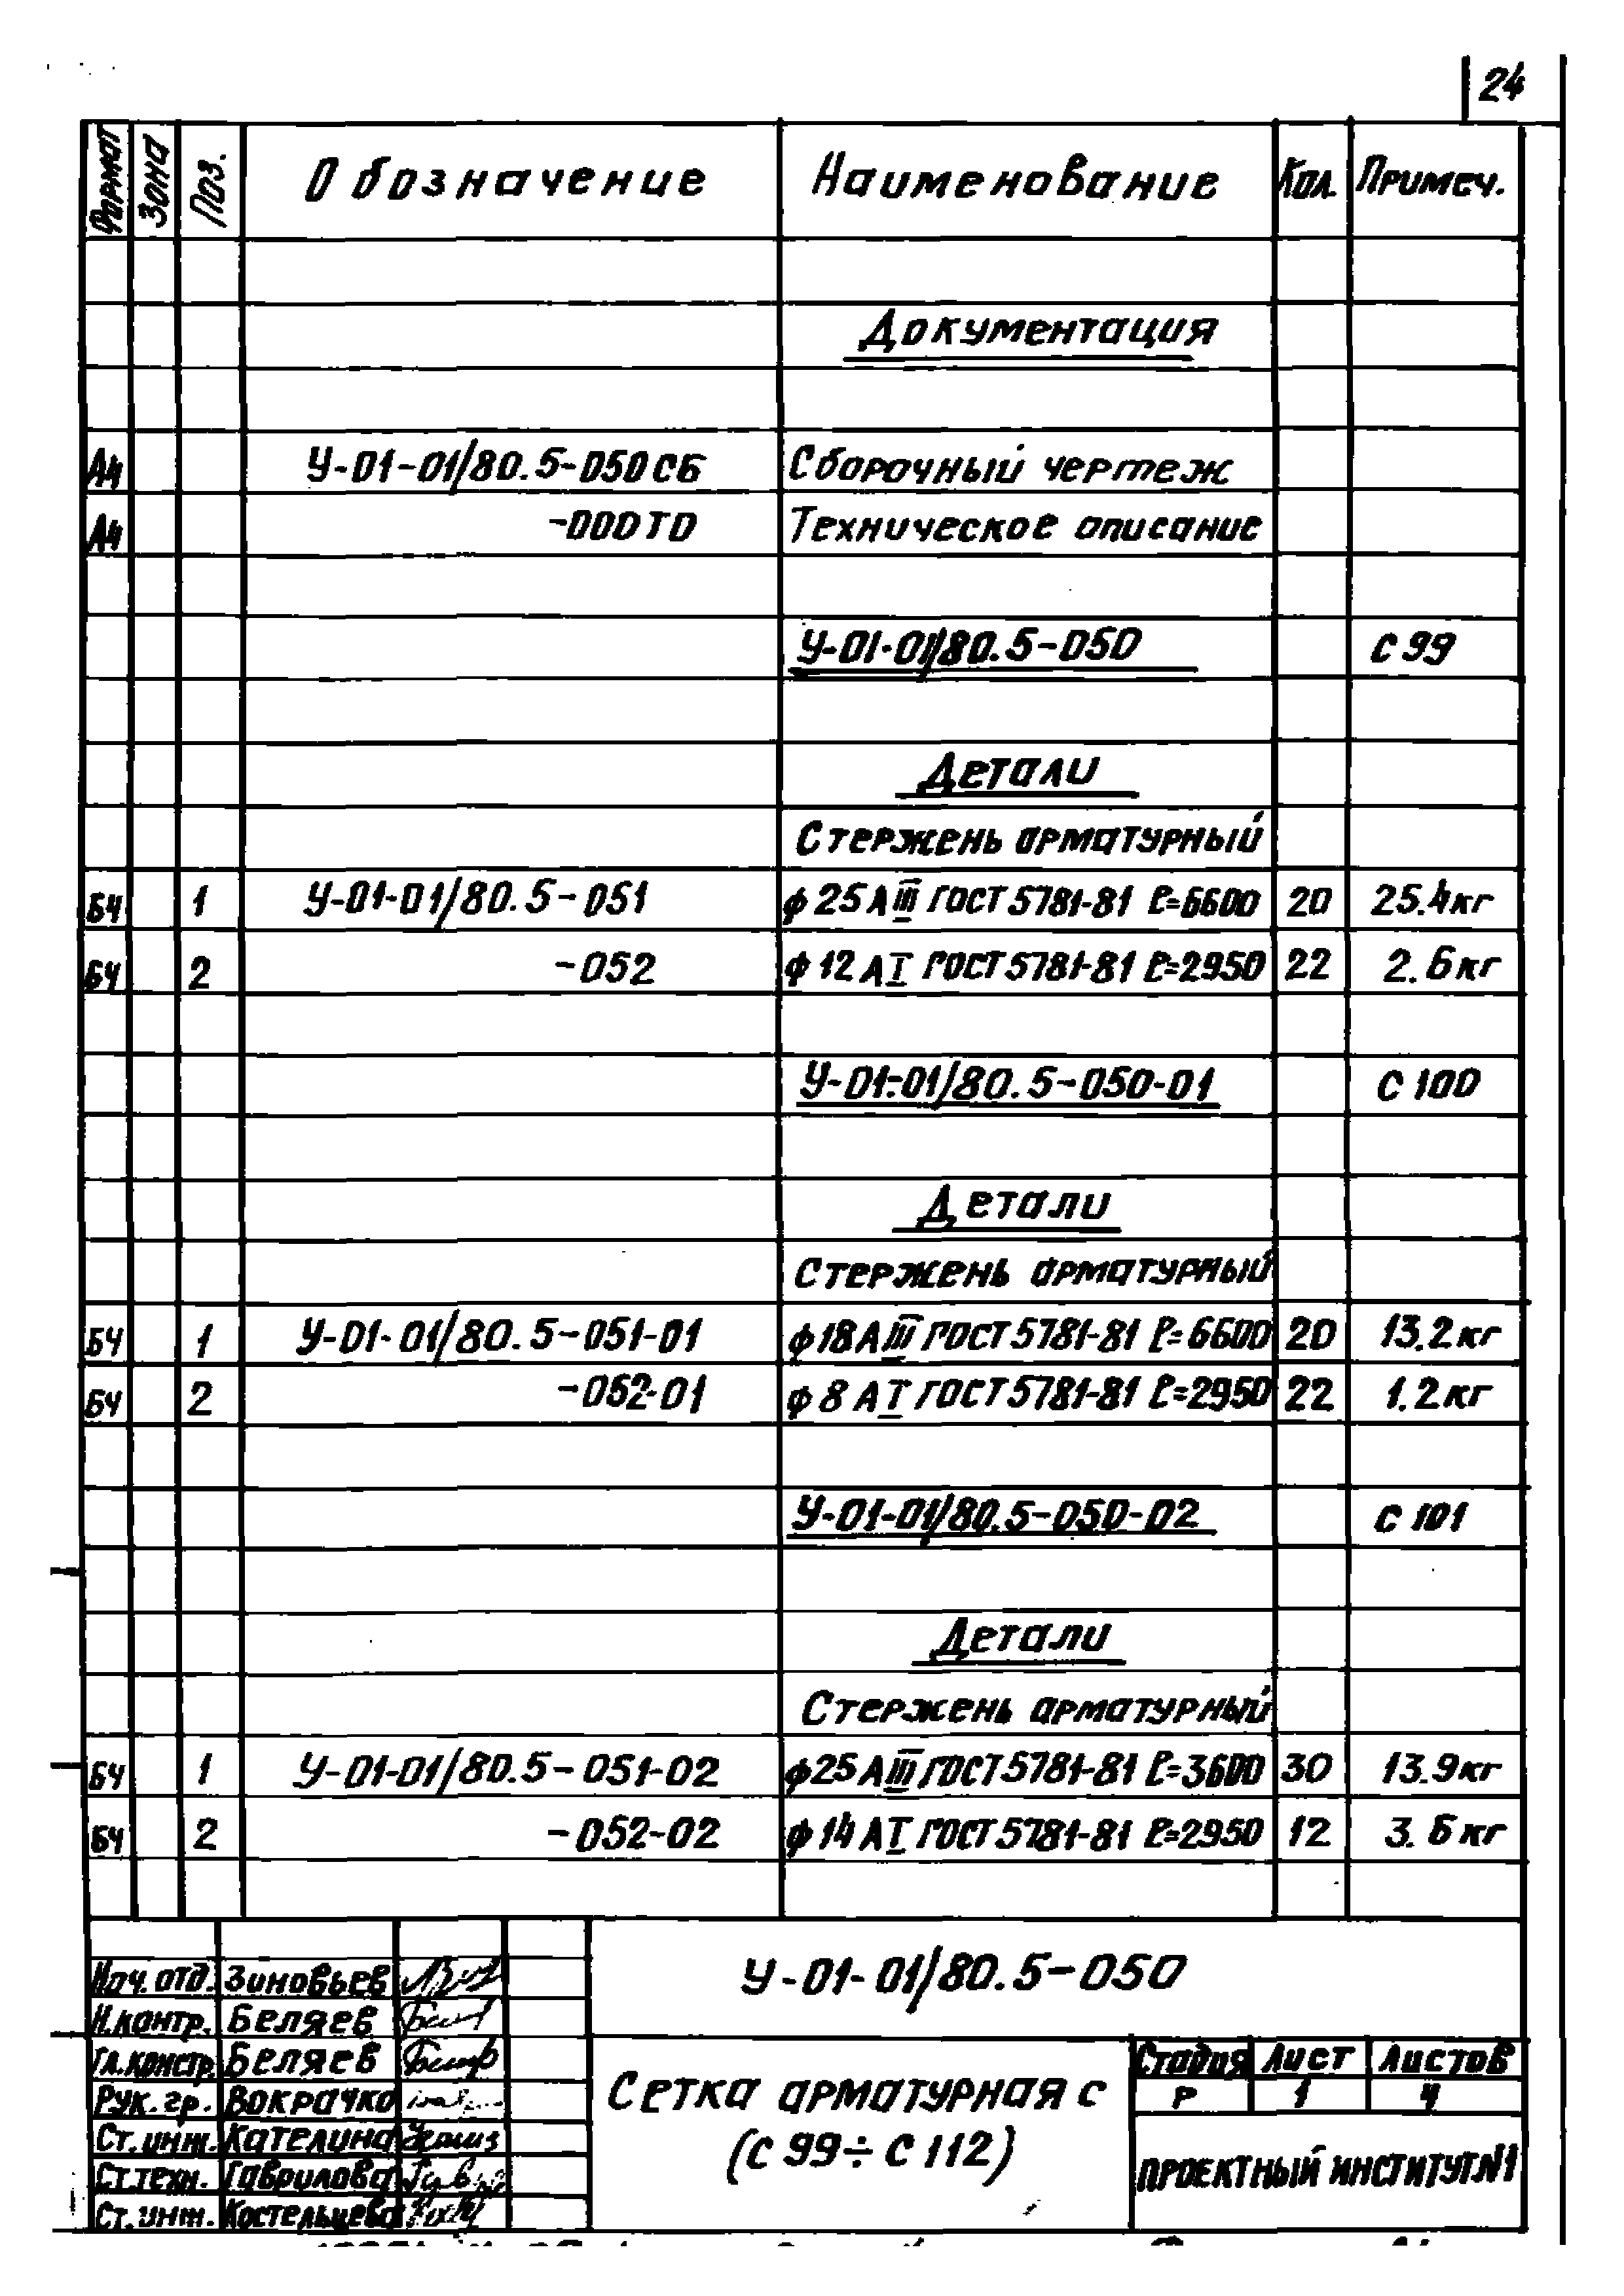 24
Формат Зона Поз. Обозначение Наименование Кол. Примеч.
Документация
А4 У-01-01/80.5-050СБ Сборочный чертеж
А4 -000ТО Техническое описание
У-01-01/80.5-050 С 99
Детали
Стержень арматурный
БЧ 1 У-01-01/80.5-051 ф25АIII ГОСТ 5781-81 ℓ=6600 20 25.4кг
БЧ 2 -052 ф12АI ГОСТ 5781-81 ℓ=2950 22 2.6кг
У-01-01/80.5-050-01 С 100
Детали
Стержень арматурный
БЧ 1 У-01-01/80.5-051-01 ф18АIII ГОСТ 5781-81 ℓ=6600 20 13.2кг
БЧ 2 -052-01 ф8АI ГОСТ 5781-81 ℓ=2950 22 1.2кг
У-01-01/80.5-050-02 С 101
Детали
Стержень арматурный
БЧ 1 У-01-01/80.5-051-02 ф25АIII ГОСТ 5781-81 ℓ=3600 30 13.9кг
БЧ 2 -052-02 ф14АI ГОСТ 5781-81 ℓ=2950 12 3.6кг
У-01-01/80.5-050
Нач. отд. Зиновьев
Н.контр. Беляев
Гл.констр. Беляев
Рук. гр. Вокрачко
Ст.инж. Кателина
Ст.техн. Гаврилова
Ст.инж. Костельцева
Сетка арматурная с
(С 99÷С 112)
Стадия Лист Листов
Р 1 4
ПРОЕКТНЫЙ ИНСТИТУТ №1